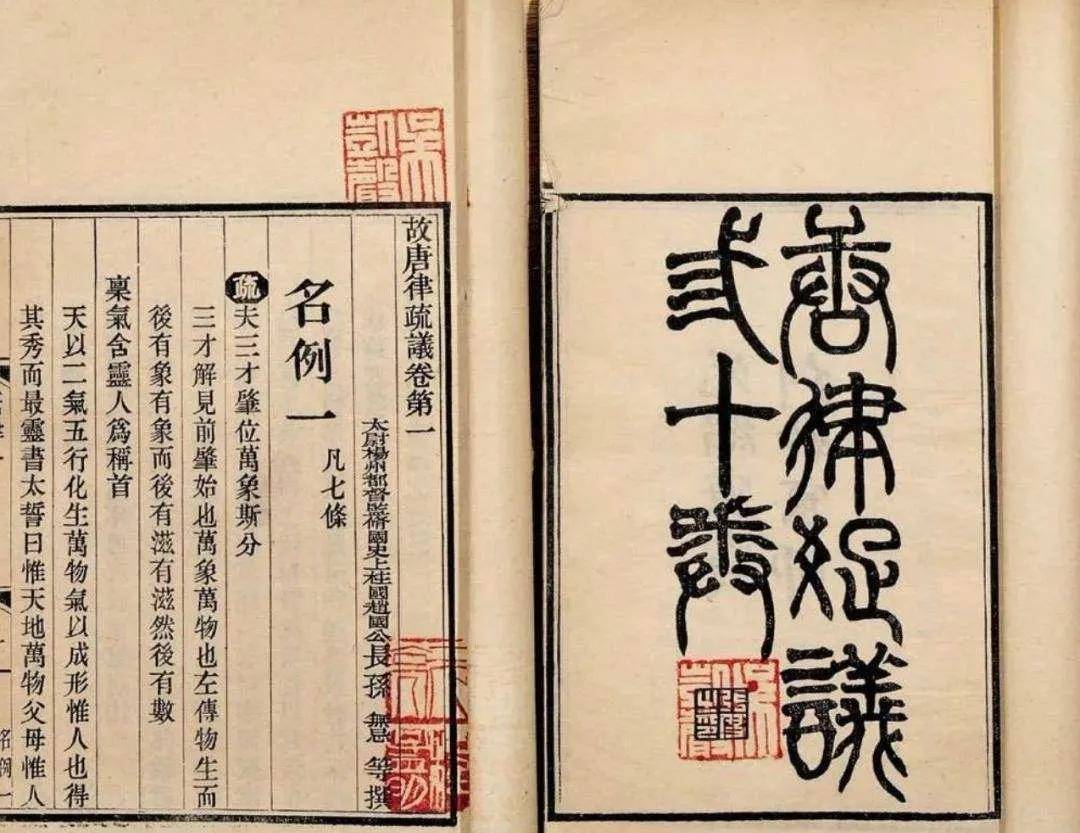 唐律疏議
弎十卷
吳凱聲
吳凱聲
故唐律疏議卷第一
太尉楊州都督監脩國史上柱國趙國公長孫無忌等撰
名例一 凡七條
疏夫三才肇位萬象斯分
三才解見前肇始也萬象萬物也左傳物生而
後有象有象而後有滋有滋然後有數
稟氣含靈人爲稱首
天以二氣五行化生萬物氣以成形惟人也得
其秀而最靈書太誓曰惟天地萬物父母惟人